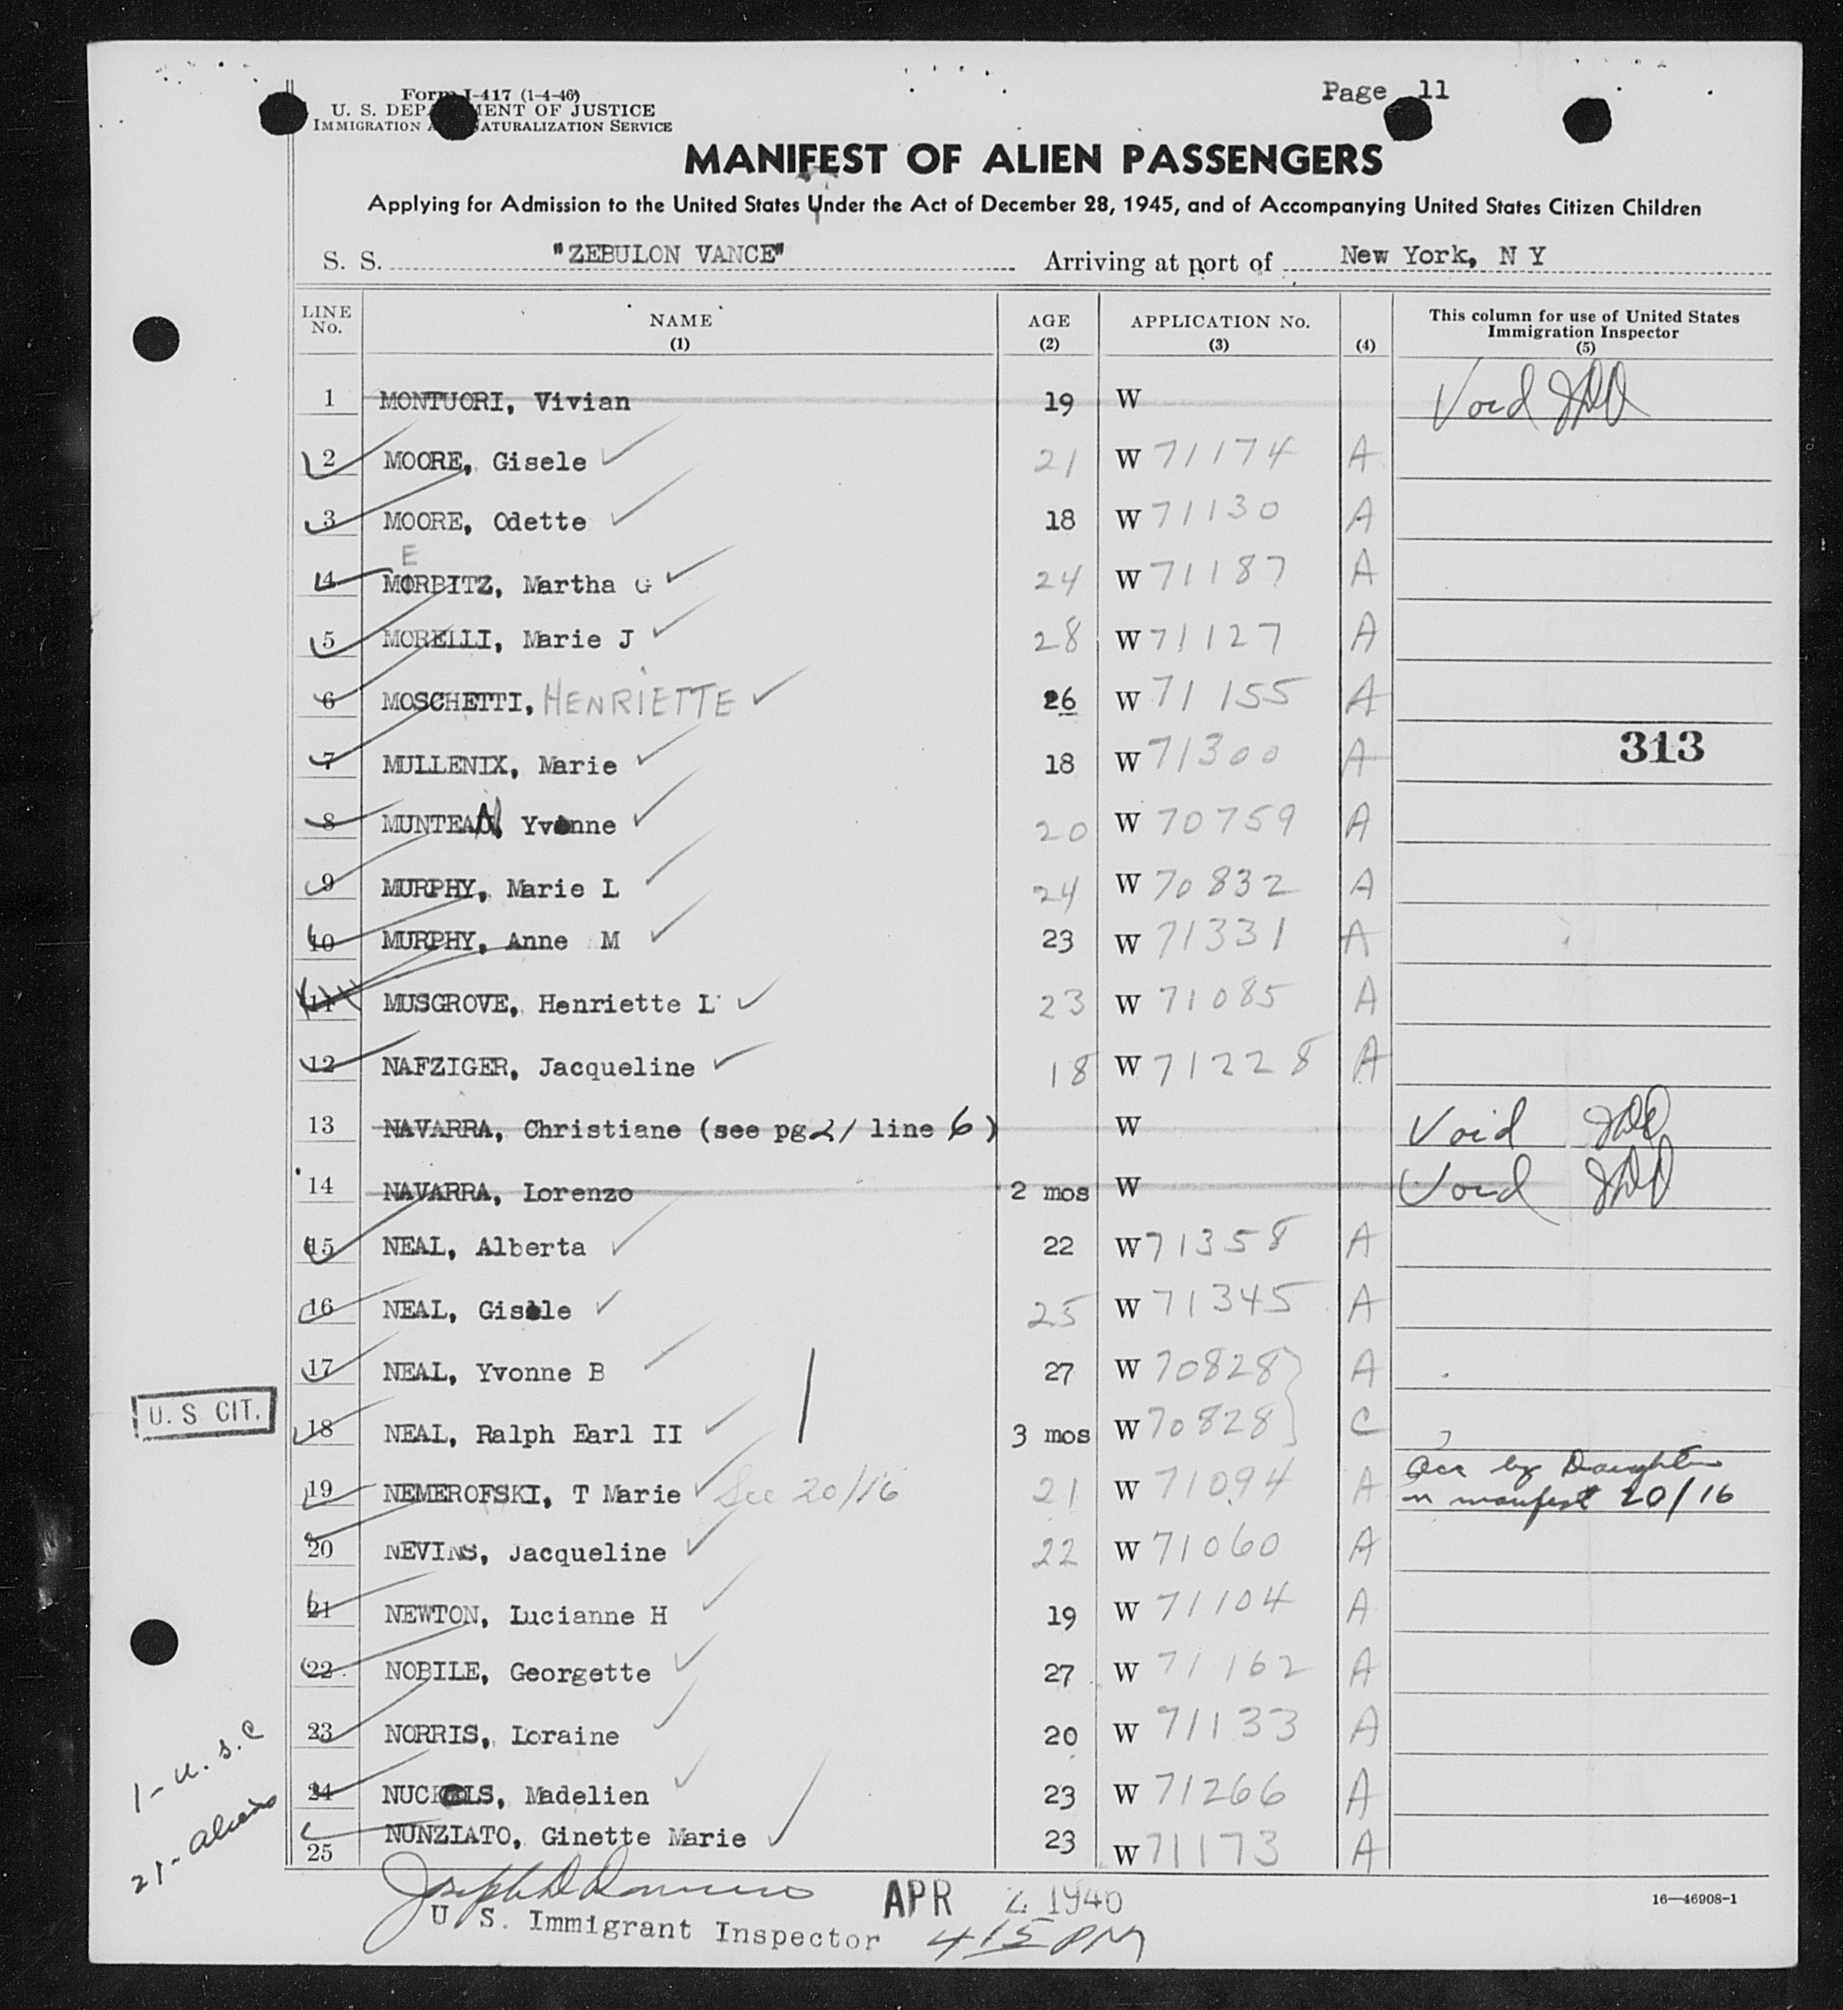 Form I-417 (1-4-46)
Page 11
U. S. DEPARTMENT OF JUSTICE
IMMIGRATION AND NATURALIZATION SERVICE
MANIFEST OF ALIEN PASSENGERS
Applying for Admission to the United States Under the Act of December 28, 1945, and of Accompanying United States Citizen Children
S. S. "ZEBULON VANCE" Arriving at port of New York, N Y
LINE No. NAME (1) AGE (2) APPLICATION No. (3) (4) This column for use of United States Immigration Inspector (5)
1 MONTUORI, Vivian 19 W Void JDD
2 MOORE, Gisele 21 W 71174 A
3 MOORE, Odette 18 W 71130 A
E
4 MORBITZ, Martha G 24 W 71187 A
5 MORELLI, Marie J 28 W 71127 A
6 MOSCHETTI, HENRIETTE 26 W 71155 A
313
7 MULLENIX, Marie 18 W 71300 A
8 MUNTEAN, Yvonne 20 W 70759 A
9 MURPHY, Marie L 24 W 70832 A
10 MURPHY, Anne M 23 W 71331 A
11 MUSGROVE, Henriette L 23 W 71085 A
12 NAFZIGER, Jacqueline 18 W 71228 A
13 NAVARRA, Christiane (see pg 21 line 6) W Void JDD
14 NAVARRA, Lorenzo 2 mos W Void JDD
15 NEAL, Alberta 22 W 71358 A
16 NEAL, Gisele 25 W 71345 A
17 NEAL, Yvonne B 27 W 70828 A
U. S CIT.
18 NEAL, Ralph Earl II 3 mos W 70828 C
19 NEMEROFSKI, T Marie See 20/16 21 W 71094 A Acc by Daughter
on manifest 20/16
20 NEVINS, Jacqueline 22 W 71060 A
21 NEWTON, Lucianne H 19 W 71104 A
22 NOBILE, Georgette 27 W 71162 A
23 NORRIS, Loraine 20 W 71133 A
1 - U. S. C
24 NUCKOLS, Madelien 23 W 71266 A
21 - aliens
25 NUNZIATO, Ginette Marie 23 W 71173 A
APR 2 1946
16—46908-1
U S. Immigrant Inspector 415 PM